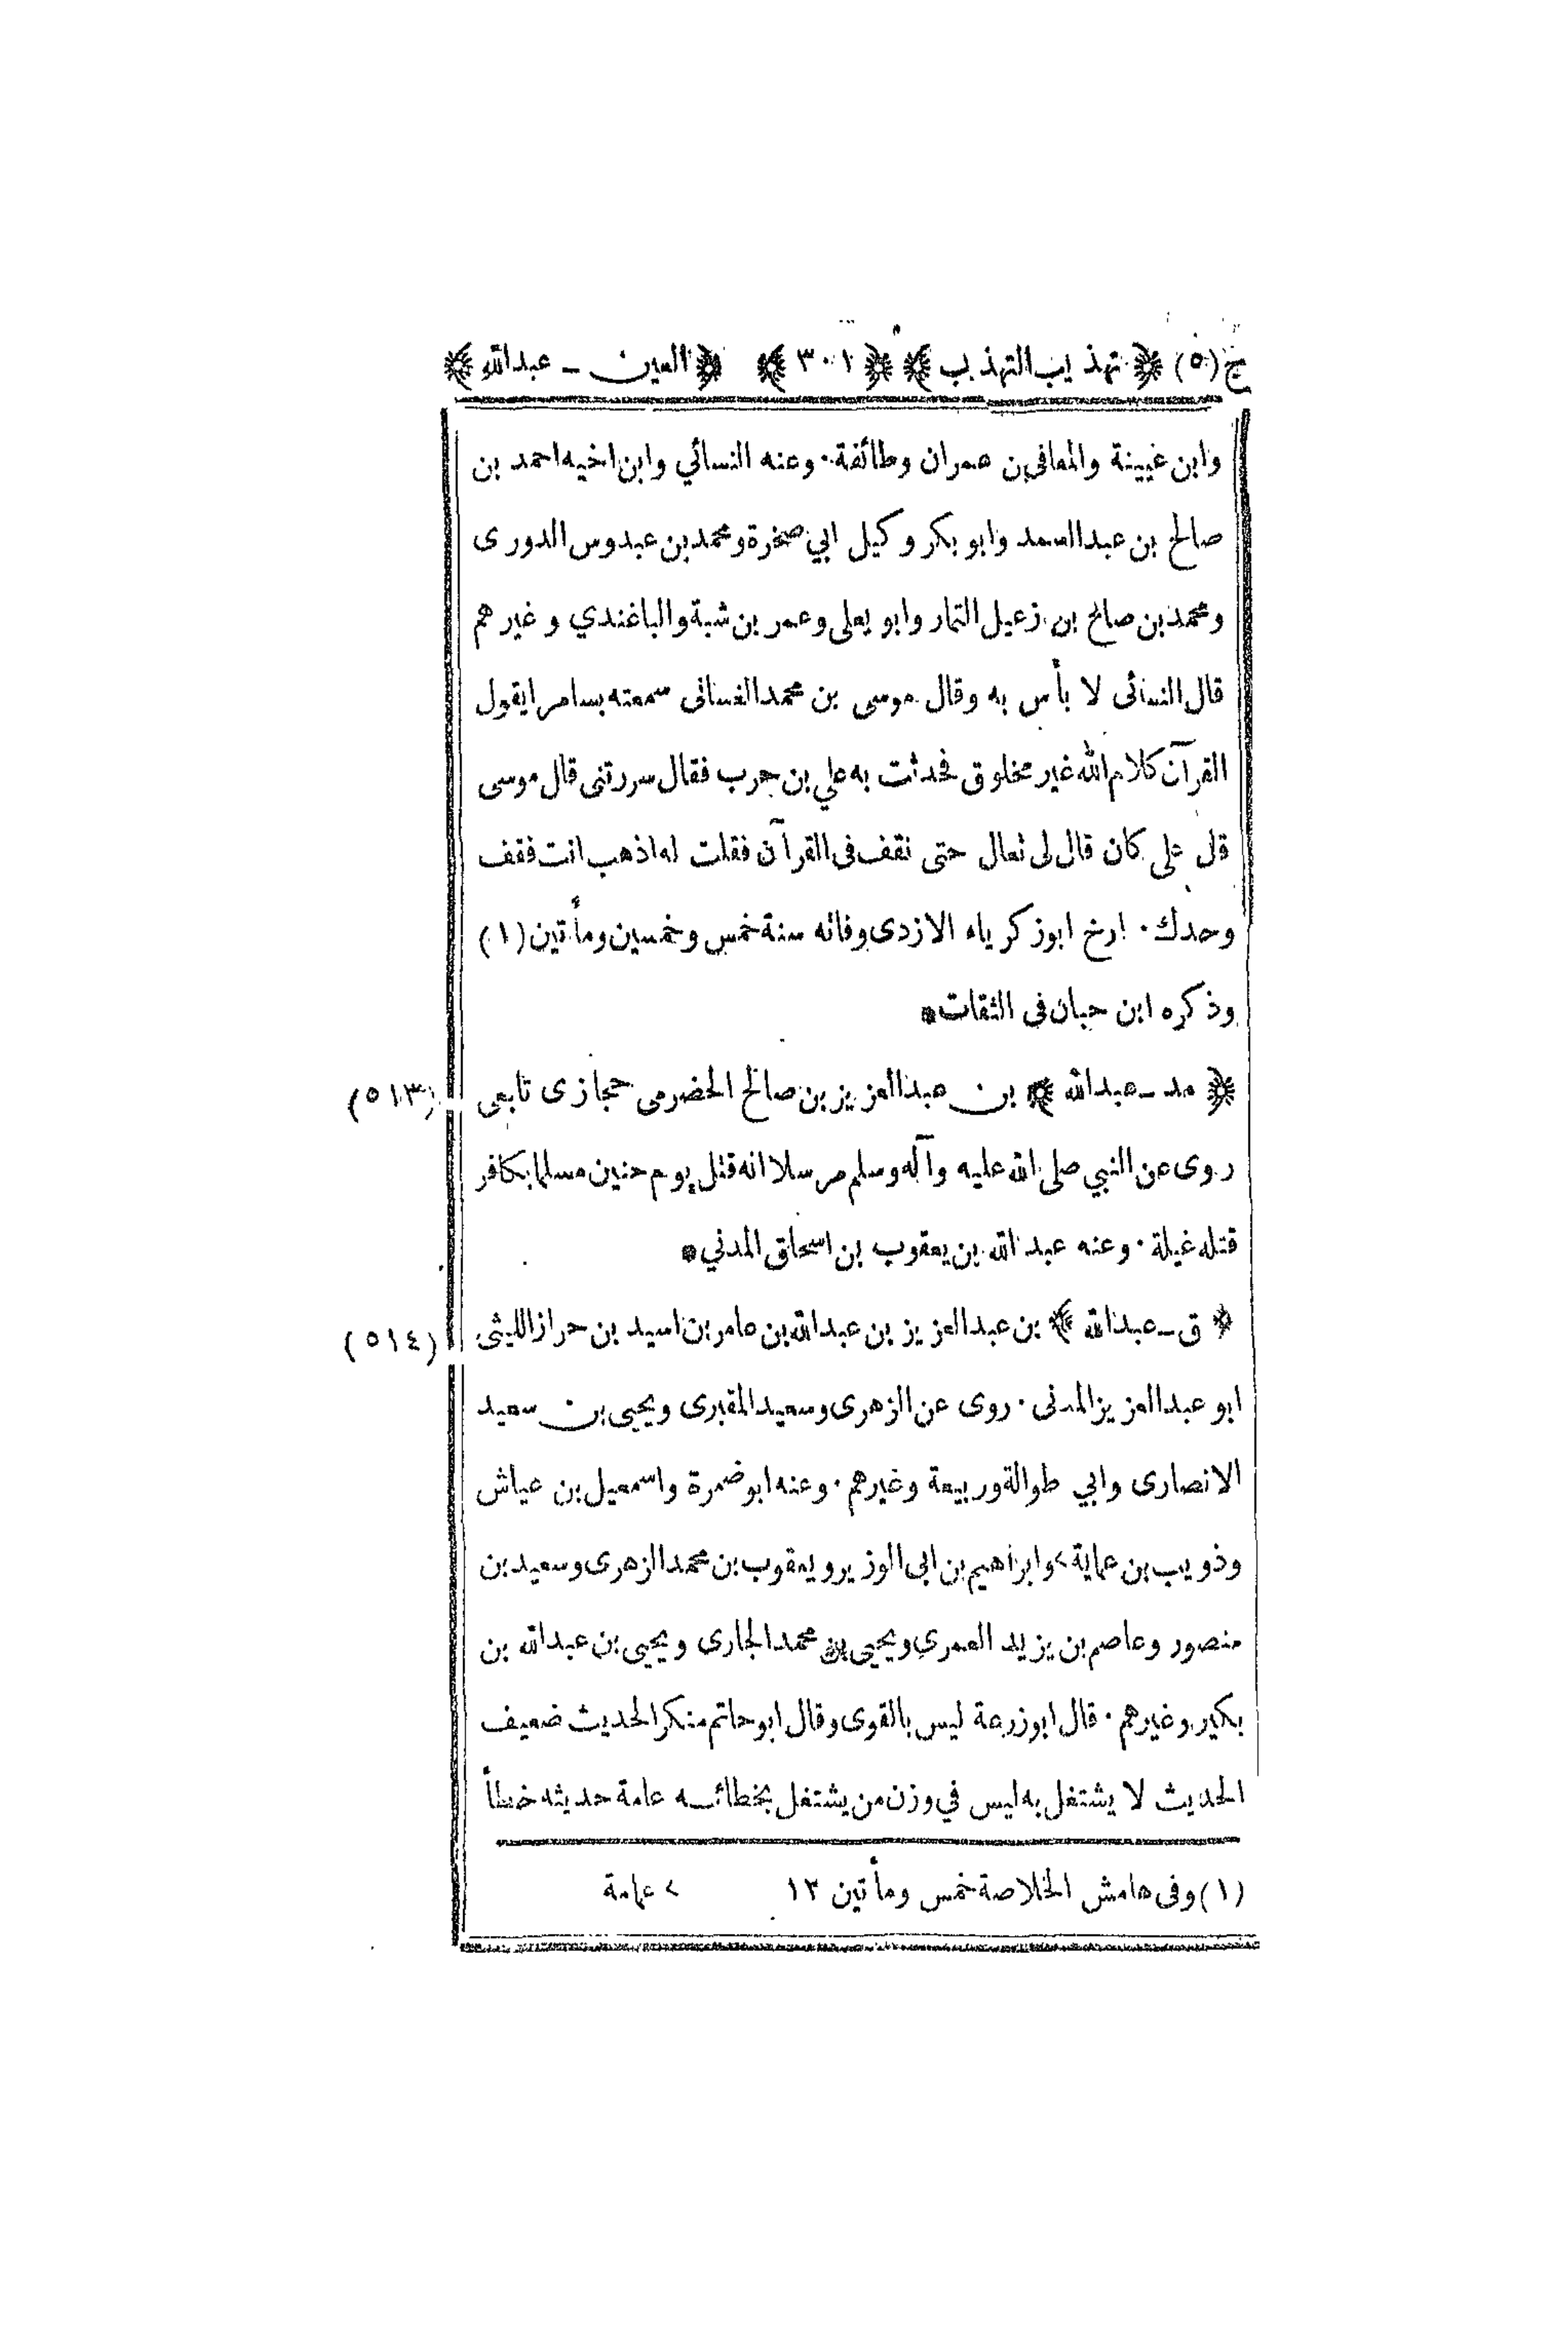 ج (٥) ﴿ تهذيب التهذيب ﴾ ﴿ ٣٠١ ﴾ ﴿ العين - عبدالله ﴾
وابن عيينة والمعافى بن عمران وطائفة . وعنه النسائي وابن اخيه احمد بن
صالح بن عبد الصمد وابو بكر وكيل ابي صخرة ومحمد بن عبدوس الدورى
ومحمد بن صالح بن زعيل التمار وابو يعلى وعمر بن شبة والباغندي وغيرهم
قال النسائى لا بأس به وقال موسى بن محمد الغسانى سمعته بسامرا يقول
القرآن كلام الله غير مخلوق فحدثت به علي بن حرب فقال سررتنى قال موسى
قل على كان قال لى تعال حتى نقف فى القرآن فقلت له اذهب انت فقف
وحدك . ارخ ابو زكرياء الازدى وفاته سنة خمس وخمسين ومأتين (١)
وذكره ابن حبان فى الثقات *
﴿ مد - عبدالله ﴾ بن عبدالعزيز بن صالح الحضرمى حجازى تابعى (٥١٣)
روى عن النبي صلى الله عليه وآله وسلم مرسلا انه قتل يوم حنين مسلما بكافر
قتله غيلة . وعنه عبد الله بن يعقوب بن اسحاق المدني *
﴿ ق - عبدالله ﴾ بن عبدالعزيز بن عبدالله بن عامر بن اسيد بن حراز الليثى (٥١٤)
ابو عبد العزيز المدنى . روى عن الزهرى وسعيد المقبرى ويحيى بن سعيد
الانصارى وابي طوالة وربيعة وغيرهم . وعنه ابو ضمرة واسمعيل بن عياش
وذويب بن عماية > وابراهيم بن ابى الوزير ويعقوب بن محمد الزهرى وسعيد بن
منصور وعاصم بن يزيد العمري ويحيى بن محمد الجارى ويحيى بن عبدالله بن
بكير وغيرهم . قال ابو زرعة ليس بالقوى وقال ابو حاتم منكر الحديث ضعيف
الحديث لا يشتغل به ليس في وزن من يشتغل بخطائه عامة حديثه خطأ
(١) وفى هامش الخلاصة خمس ومأتين ١٢ > عمامة